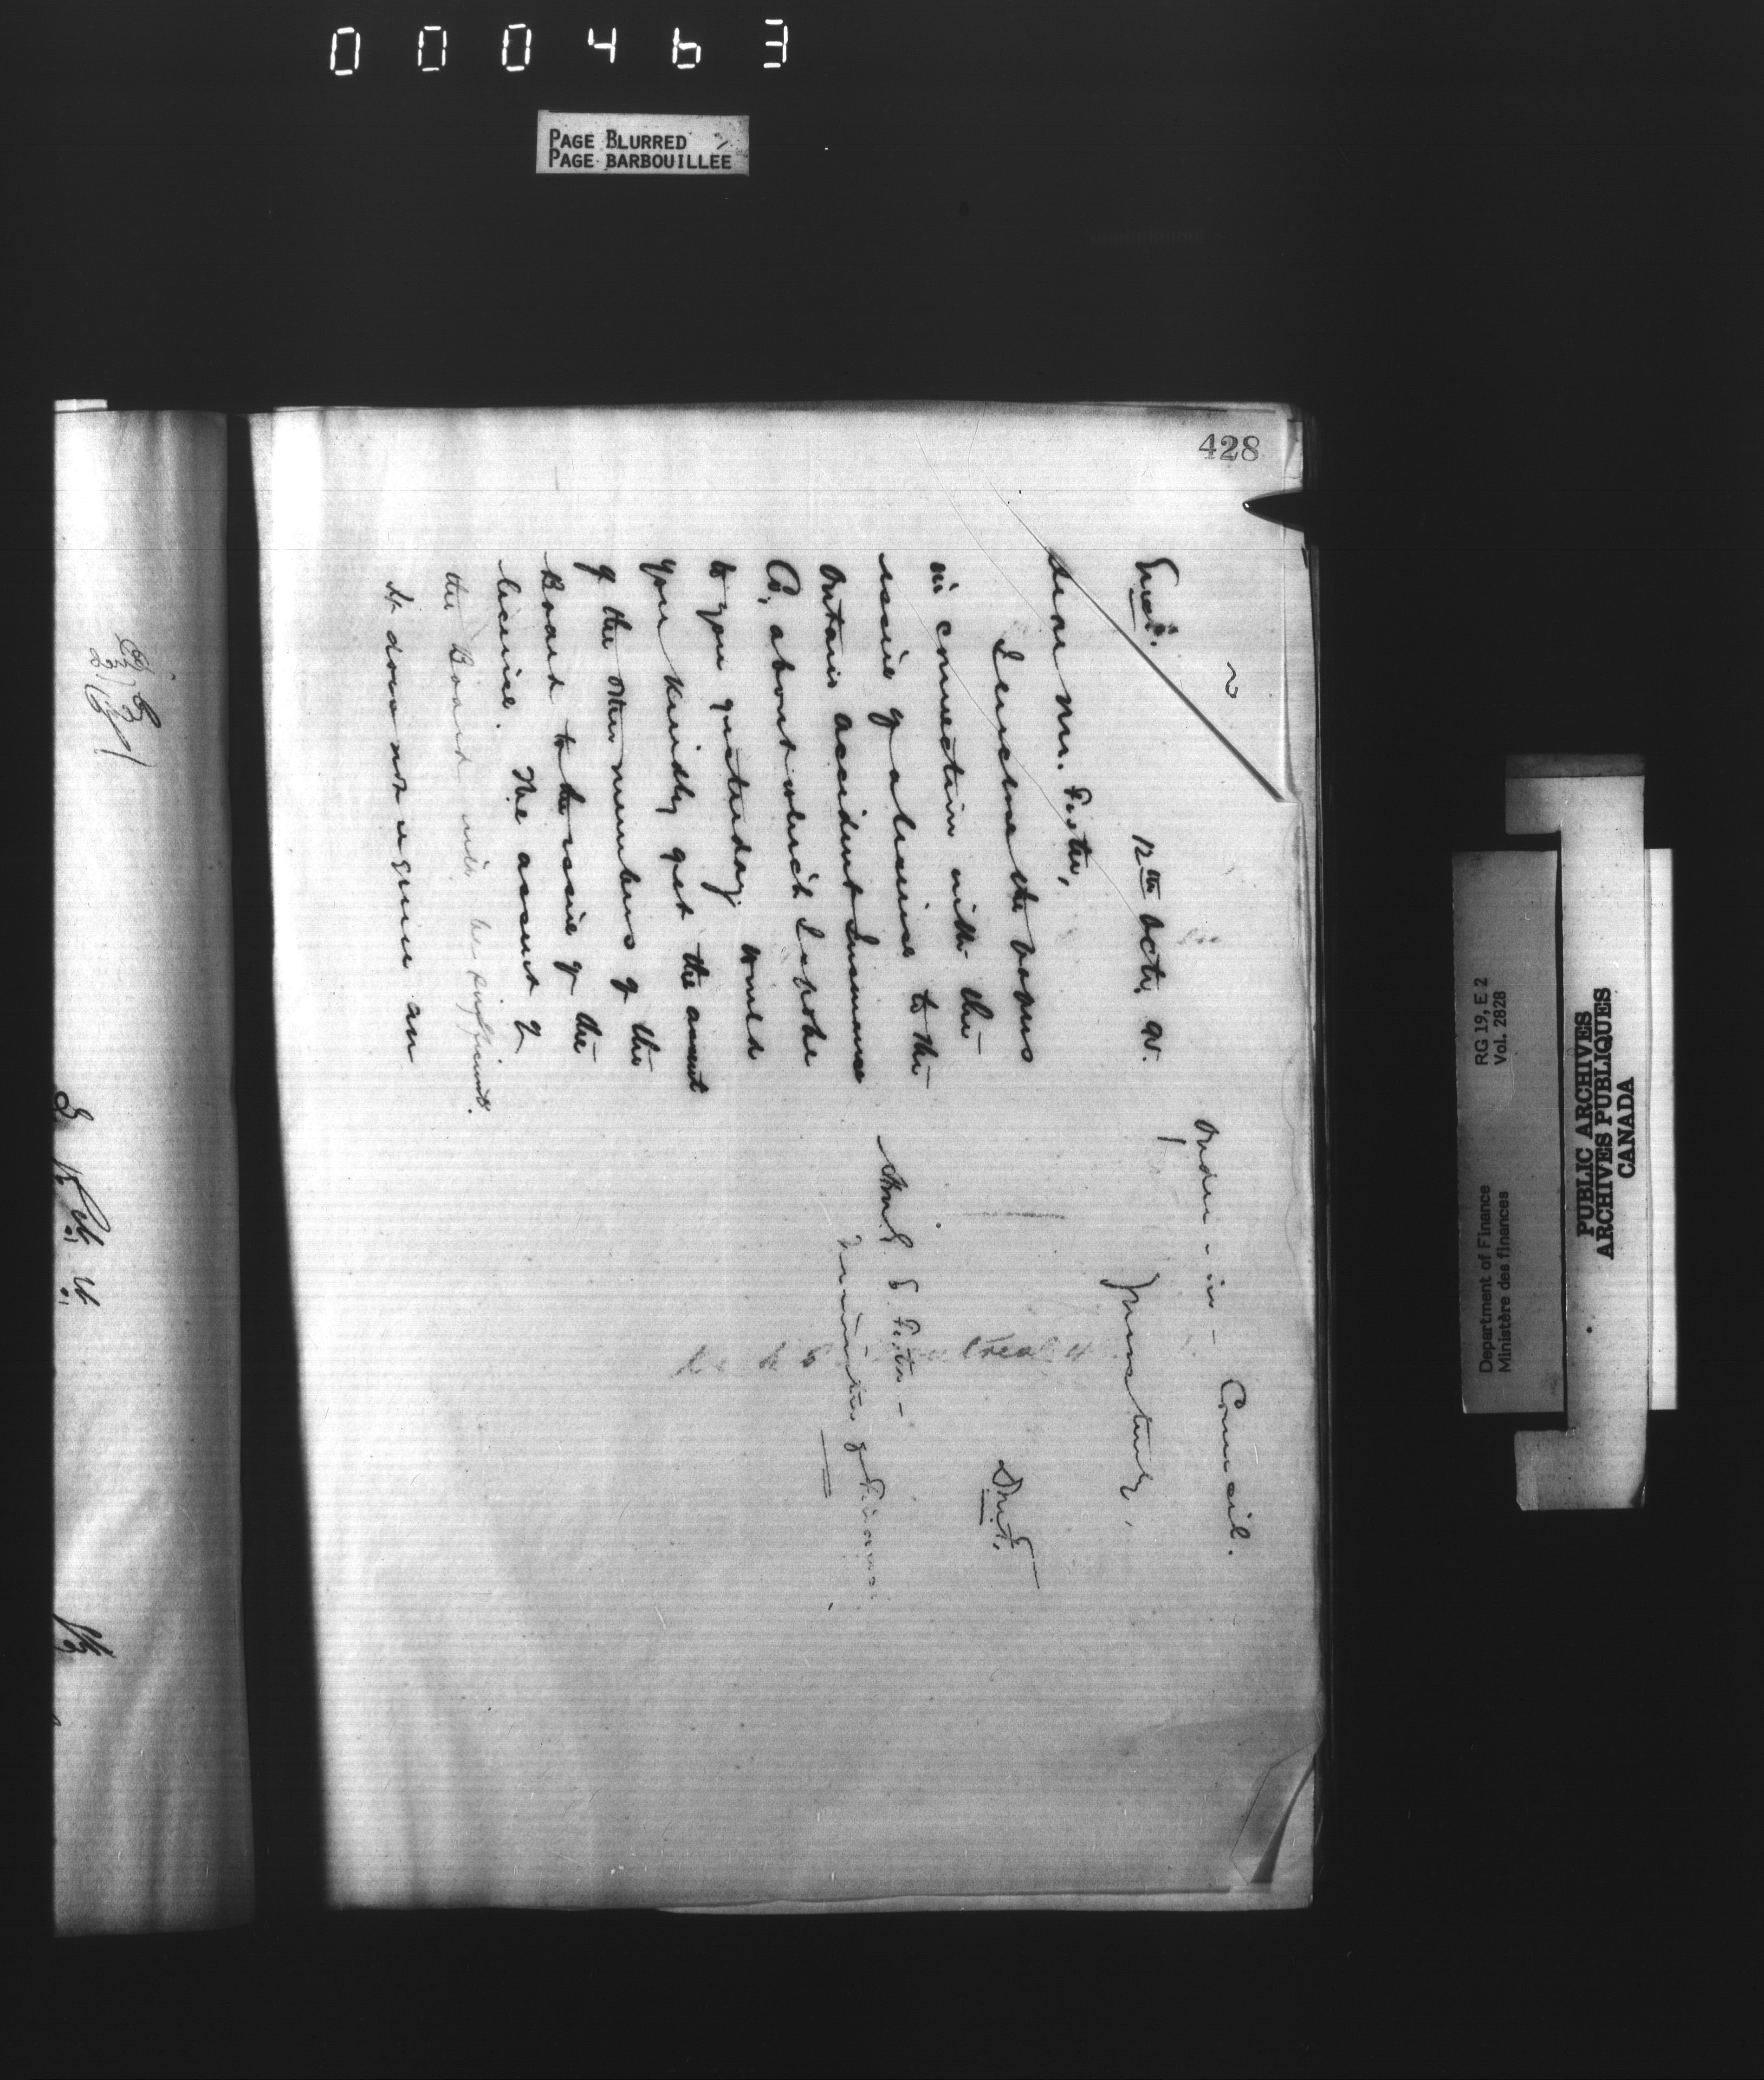 000463
PAGE BLURRED
PAGE BARBOUILLÉE
428
Encl.
12th Octr. 95.
Dear Mr. Foster,
I enclose the papers
in connection with the
issue of a license to the
Ontario Accident Insurance
Co, about which I spoke
to you yesterday. Would
you kindly get the assent
of the other members of the
Board to the issue of the
license. The assent of
the Board will be sufficient.
It does not require an
Order-in-Council.
Yours truly,
Hon. G. E. Foster -
Minister of Finance.
PUBLIC ARCHIVES
ARCHIVES PUBLIQUES
CANADA
RG 19, E 2
Vol. 2828
Department of Finance
Ministère des finances